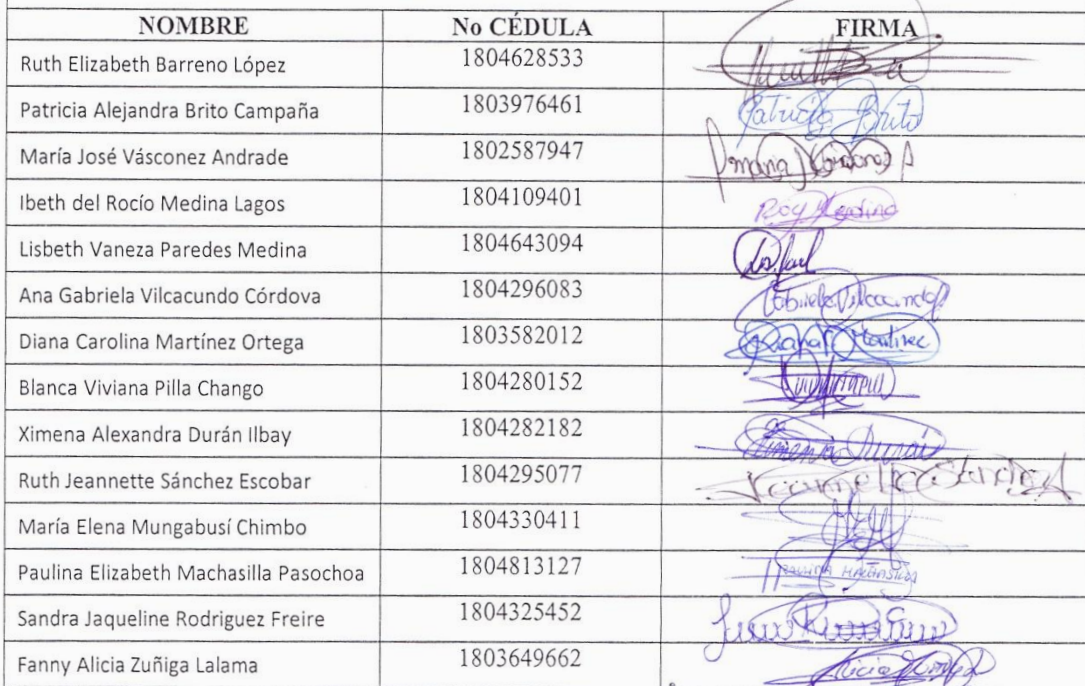 NOMBRE No CÉDULA FIRMA
Ruth Elizabeth Barreno López 1804628533
Patricia Alejandra Brito Campaña 1803976461 Patricia Brito
María José Vásconez Andrade 1802587947
Ibeth del Rocío Medina Lagos 1804109401
Lisbeth Vaneza Paredes Medina 1804643094
Ana Gabriela Vilcacundo Córdova 1804296083 Gabriela Vilcacundo
Diana Carolina Martínez Ortega 1803582012 Martinez
Blanca Viviana Pilla Chango 1804280152
Ximena Alexandra Durán Ilbay 1804282182 Ximena Durán
Ruth Jeannette Sánchez Escobar 1804295077
María Elena Mungabusí Chimbo 1804330411
Paulina Elizabeth Machasilla Pasochoa 1804813127
Sandra Jaqueline Rodriguez Freire 1804325452
Fanny Alicia Zuñiga Lalama 1803649662